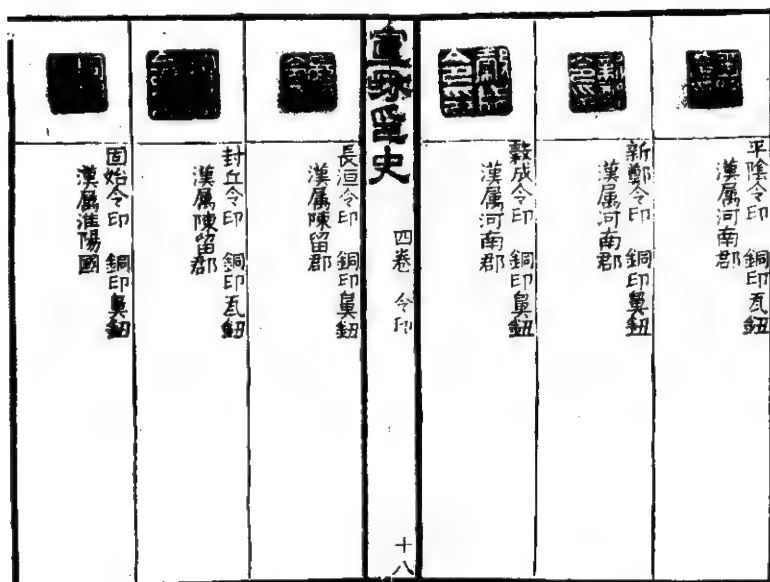 平陰令印 銅印瓦鈕
漢属河南郡
新鄭令印 銅印鼻鈕
漢属河南郡
榖成令印 銅印鼻鈕
漢属河南郡
宣和印史
四卷 令印
十八
長洹令印 銅印鼻鈕
漢属陳留郡
封丘令印 銅印瓦鈕
漢属陳留郡
固始令印 銅印鼻鈕
漢属淮陽國